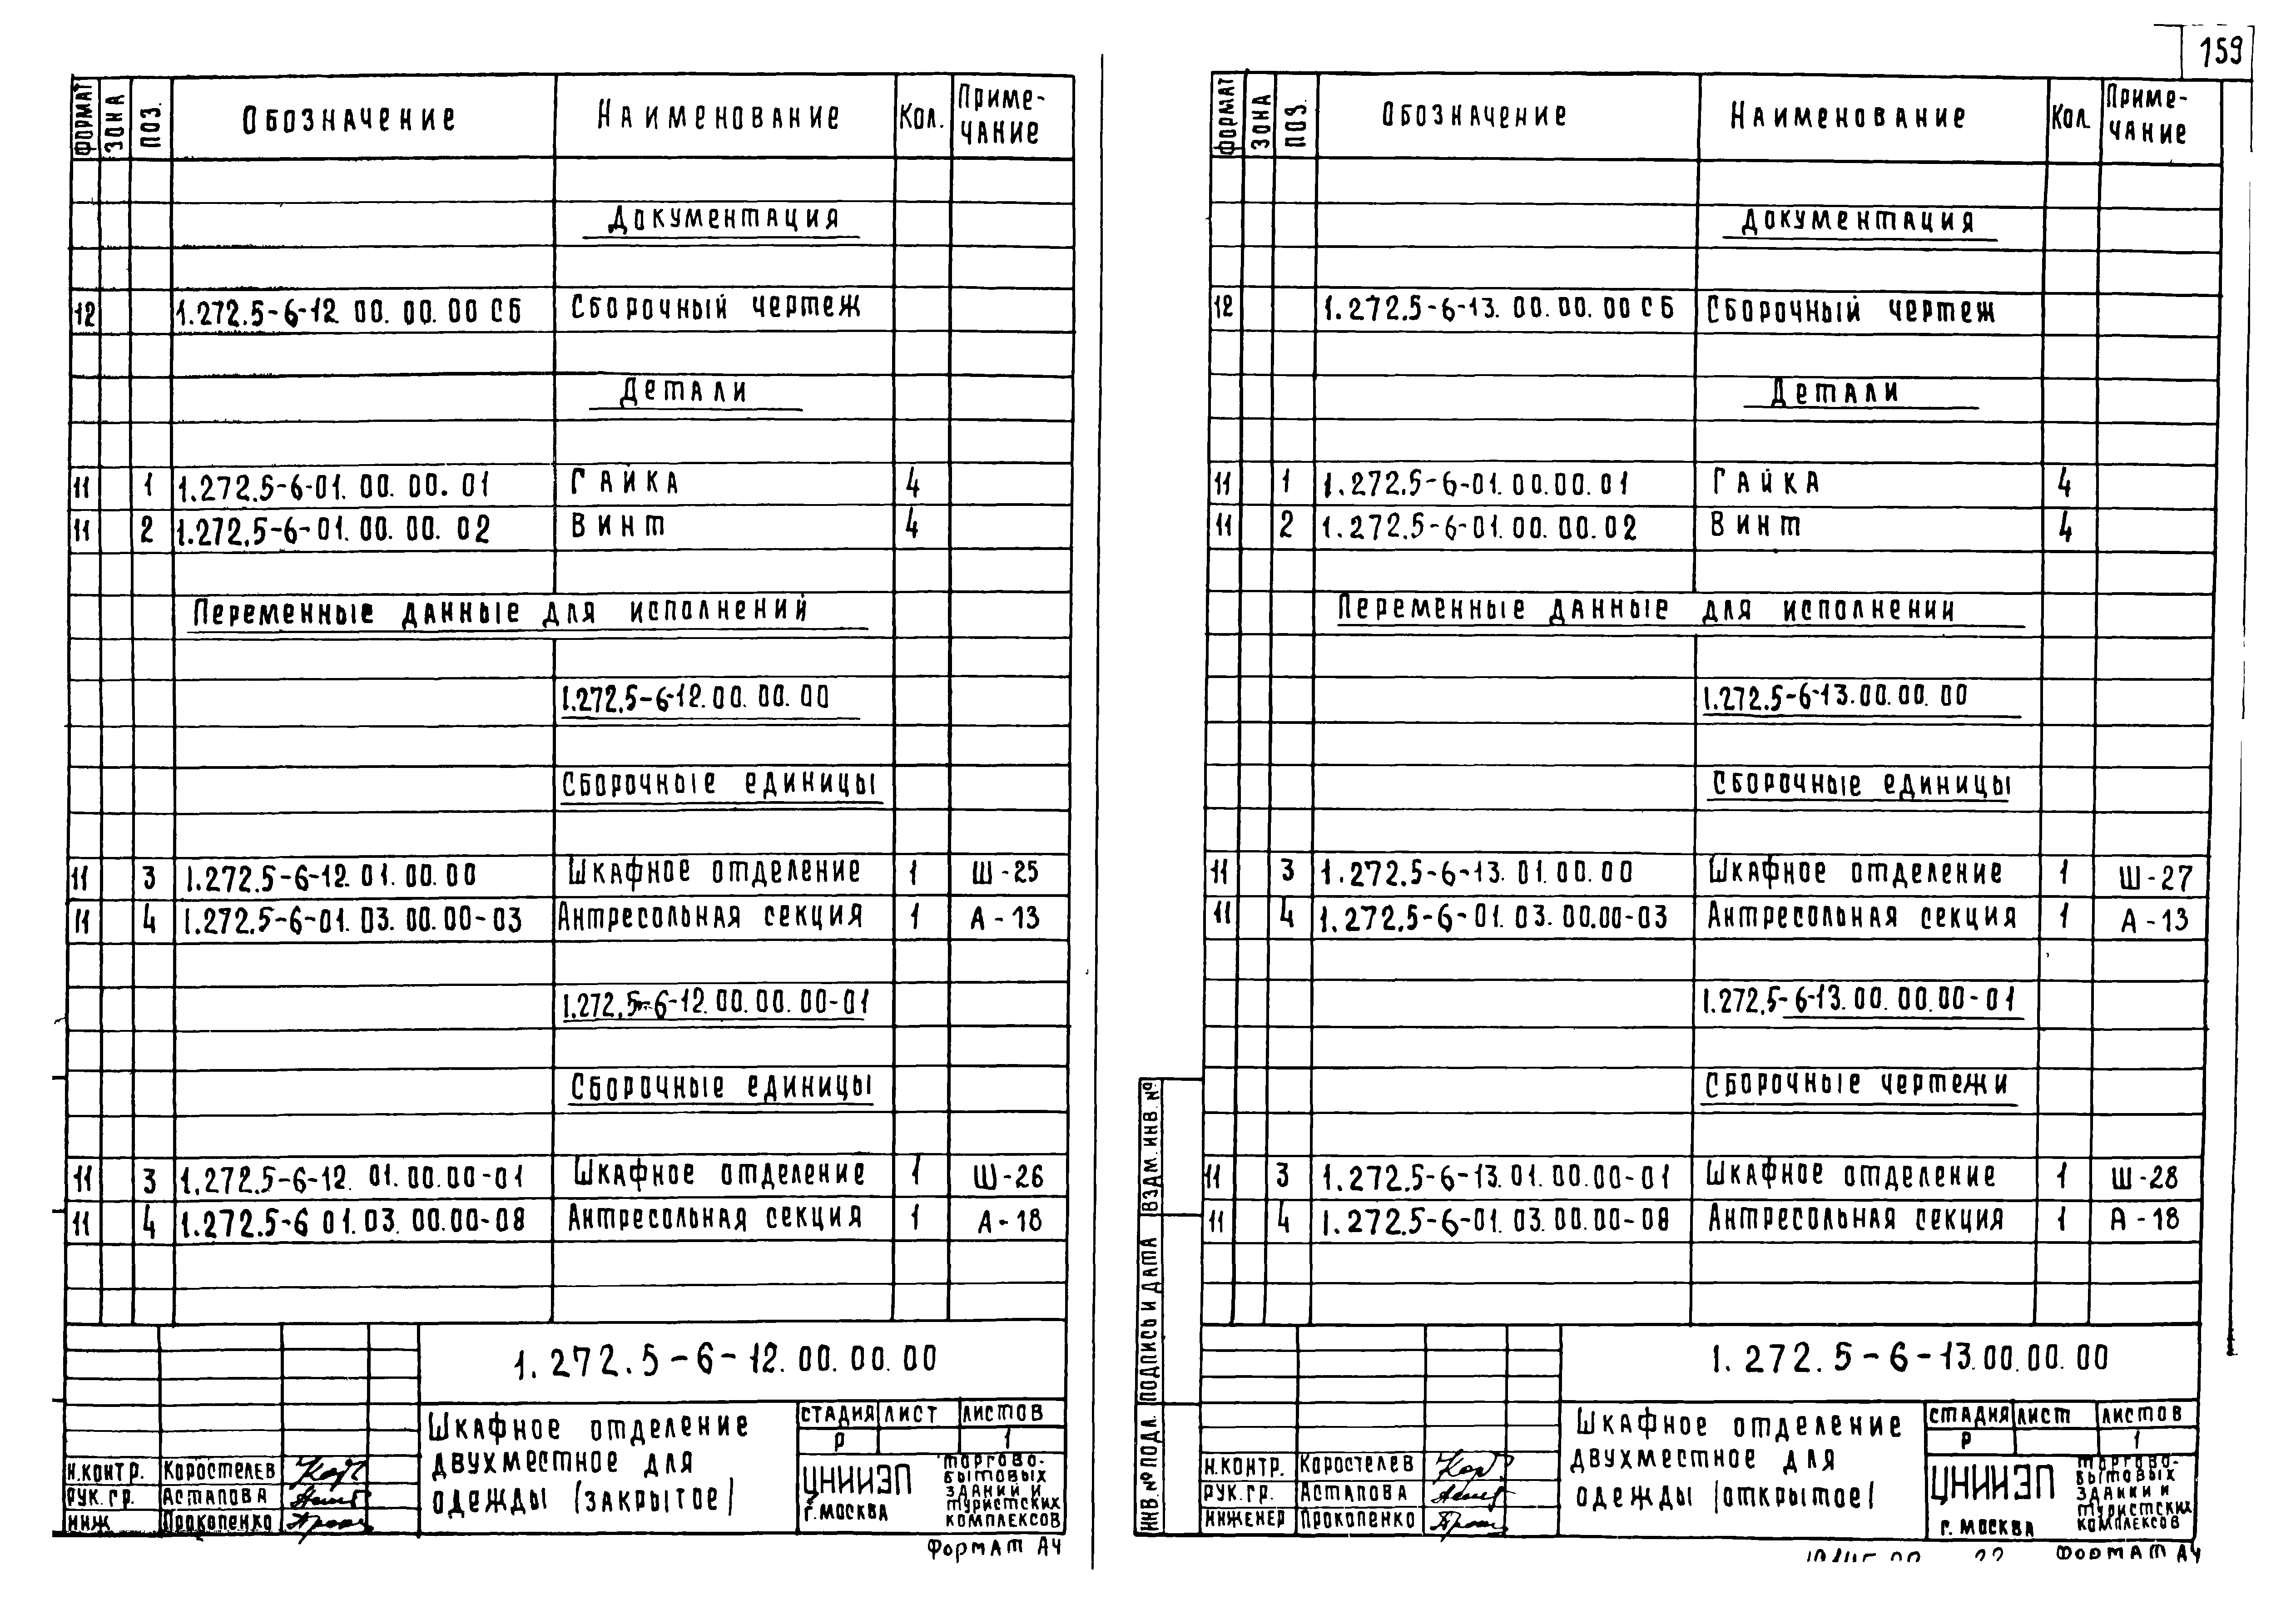 159
ФОРМАТ ЗОНА ПОЗ. ОБОЗНАЧЕНИЕ НАИМЕНОВАНИЕ КОЛ. ПРИМЕ-ЧАНИЕ
ДОКУМЕНТАЦИЯ
12 1.272.5-6-12 00. 00. 00 СБ СБОРОЧНЫЙ ЧЕРТЕЖ
ДЕТАЛИ
11 1 1.272.5-6-01. 00. 00. 01 ГАЙКА 4
11 2 1.272.5-6-01. 00. 00. 02 ВИНТ 4
ПЕРЕМЕННЫЕ ДАННЫЕ ДЛЯ ИСПОЛНЕНИЙ
1.272.5-6-12.00. 00. 00
СБОРОЧНЫЕ ЕДИНИЦЫ
11 3 1.272.5-6-12. 01. 00. 00 ШКАФНОЕ ОТДЕЛЕНИЕ 1 Ш-25
11 4 1.272.5-6-01. 03. 00.00-03 АНТРЕСОЛЬНАЯ СЕКЦИЯ 1 А-13
1.272.5-6-12.00.00.00-01
СБОРОЧНЫЕ ЕДИНИЦЫ
11 3 1.272.5-6-12. 01.00.00-01 ШКАФНОЕ ОТДЕЛЕНИЕ 1 Ш-26
11 4 1.272.5-6 01.03. 00.00-08 АНТРЕСОЛЬНАЯ СЕКЦИЯ 1 А-18
1.272.5-6-12.00.00.00
ШКАФНОЕ ОТДЕЛЕНИЕ
ДВУХМЕСТНОЕ ДЛЯ
ОДЕЖДЫ /ЗАКРЫТОЕ/
СТАДИЯ ЛИСТ ЛИСТОВ
Р 1
Н.КОНТР. КОРОСТЕЛЕВ
РУК. ГР. АСТАПОВА
ИНЖ ПРОКОПЕНКО
ЦНИИЭП
Г. МОСКВА
ТОРГОВО-
БЫТОВЫХ
ЗДАНИЙ И
ТУРИСТСКИХ
КОМПЛЕКСОВ
ФОРМАТ А4
ФОРМАТ ЗОНА ПОЗ. ОБОЗНАЧЕНИЕ НАИМЕНОВАНИЕ КОЛ. ПРИМЕ-ЧАНИЕ
ДОКУМЕНТАЦИЯ
12 1.272.5-6-13. 00. 00. 00 СБ СБОРОЧНЫЙ ЧЕРТЕЖ
ДЕТАЛИ
11 1 1.272.5-6-01.00.00.01 ГАЙКА 4
11 2 1.272.5-6-01.00.00.02 ВИНТ 4
ПЕРЕМЕННЫЕ ДАННЫЕ ДЛЯ ИСПОЛНЕНИИ
1.272.5-6-13.00.00. 00
СБОРОЧНЫЕ ЕДИНИЦЫ
11 3 1.272.5-6-13. 01. 00. 00 ШКАФНОЕ ОТДЕЛЕНИЕ 1 Ш-27
11 4 1.272.5-6-01. 03. 00.00-03 АНТРЕСОЛЬНАЯ СЕКЦИЯ 1 А-13
1.272.5-6-13.00.00.00-01
СБОРОЧНЫЕ ЧЕРТЕЖИ
11 3 1.272.5-6-13.01.00.00-01 ШКАФНОЕ ОТДЕЛЕНИЕ 1 Ш-28
11 4 1.272.5-6-01. 03. 00.00-08 АНТРЕСОЛЬНАЯ СЕКЦИЯ 1 А-18
ИНВ.№ ПОДЛ. ПОДПИСЬ И ДАТА ВЗАМ. ИНВ. №
1.272.5-6-13.00.00.00
ШКАФНОЕ ОТДЕЛЕНИЕ
ДВУХМЕСТНОЕ ДЛЯ
ОДЕЖДЫ /ОТКРЫТОЕ/
СТАДИЯ ЛИСТ ЛИСТОВ
Р 1
Н.КОНТР. КОРОСТЕЛЕВ
РУК.ГР. АСТАПОВА
ИНЖЕНЕР ПРОКОПЕНКО
ЦНИИЭП
Г. МОСКВА
ТОРГОВО-
БЫТОВЫХ
ЗДАНИИ И
ТУРИСТСКИХ
КОМПЛЕКСОВ
ФОРМАТ А4